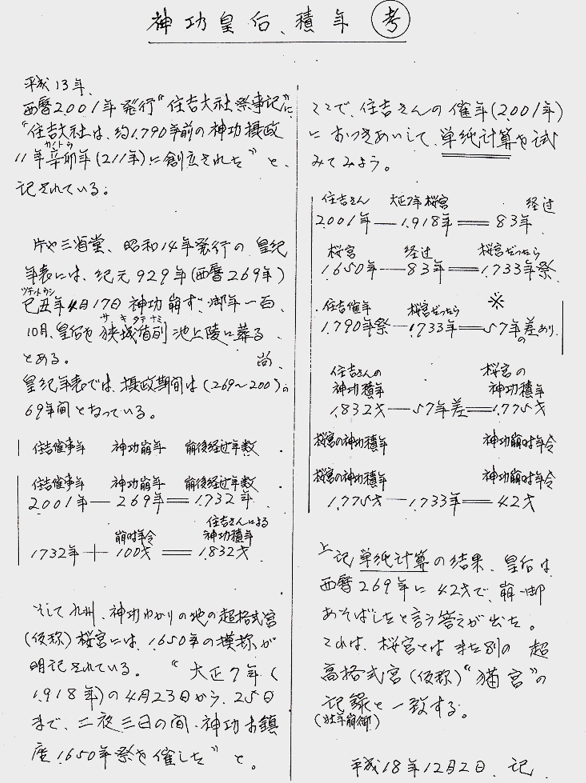 神功皇后、積年 考
平成13年、
西暦2.001年発行“住吉大社祭事記”に
“住吉大社は、約1.790年前の神功摂政
11年辛卯年(211年)に創立された”と、
記されている。
片や三省堂、昭和14年発行の皇紀
年表には、紀元929年(西暦269年)
己丑年4月17日神功崩ず、御年一百、
10月、皇后を狭城盾列池上陵に葬る
とある。 尚、
皇紀年表では、摂政期間は(269〜200)。
69年間となっている。
住吉催事年 神功崩年 前後経過年数
住吉催事年 神功崩年 前後経過年数
2001年―269年=1.732年
崩時年令 住吉さんによる神功積年
1732年+100才=1.832才
そして九州、神功ゆかりの地の超格式宮
(仮称)桜宮には、1.650年の積称が
明記されている。“大正7年(
1.918年)の4月23日から、25日
まで、二夜三日の間、神功古鎮
座1.650年祭を催した”と。
ここで、住吉さんの催年(2001年)
におつきあいして、単純計算を試
みてみよう。
住吉さん 大正7年桜宮 経過
2.001年―1.918年=83年
桜宮 経過 桜宮だったら
1.650年―83年=1.733年祭
住吉催年 桜宮だったら ※
1.790年祭―1.733年=57年差あり
住吉さんの 桜宮の
神功積年 神功積年
1.832才―57年差=1.775才
桜宮の神功積年 神功崩時年令
桜宮の神功積年 神功崩時年令
1.775才―1.733年=42才
上記単純計算の結果、皇后は
西暦269年に42才で、崩御
あそばしたと言う答えが出た。
これは、桜宮とはまた別の超
高格式宮(仮称)“猫宮”の
記録と一致する。
平成18年12月2日、記